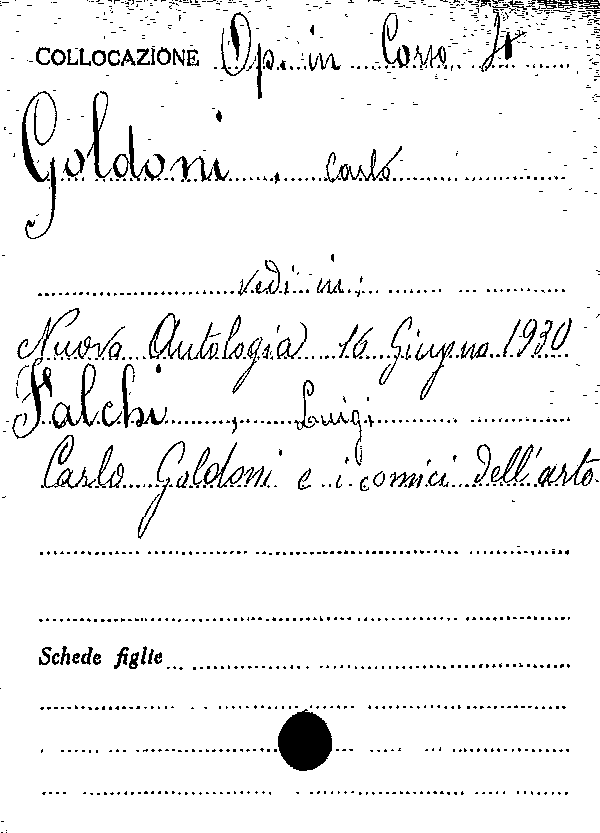 COLLOCAZIONE Op. in Corso It
Goldoni, Carlo
vedi in:
Nuova Antologia 16 Giugno 1930
Falchi, Luigi
Carlo Goldoni e i comici dell'arte
Schede figlie